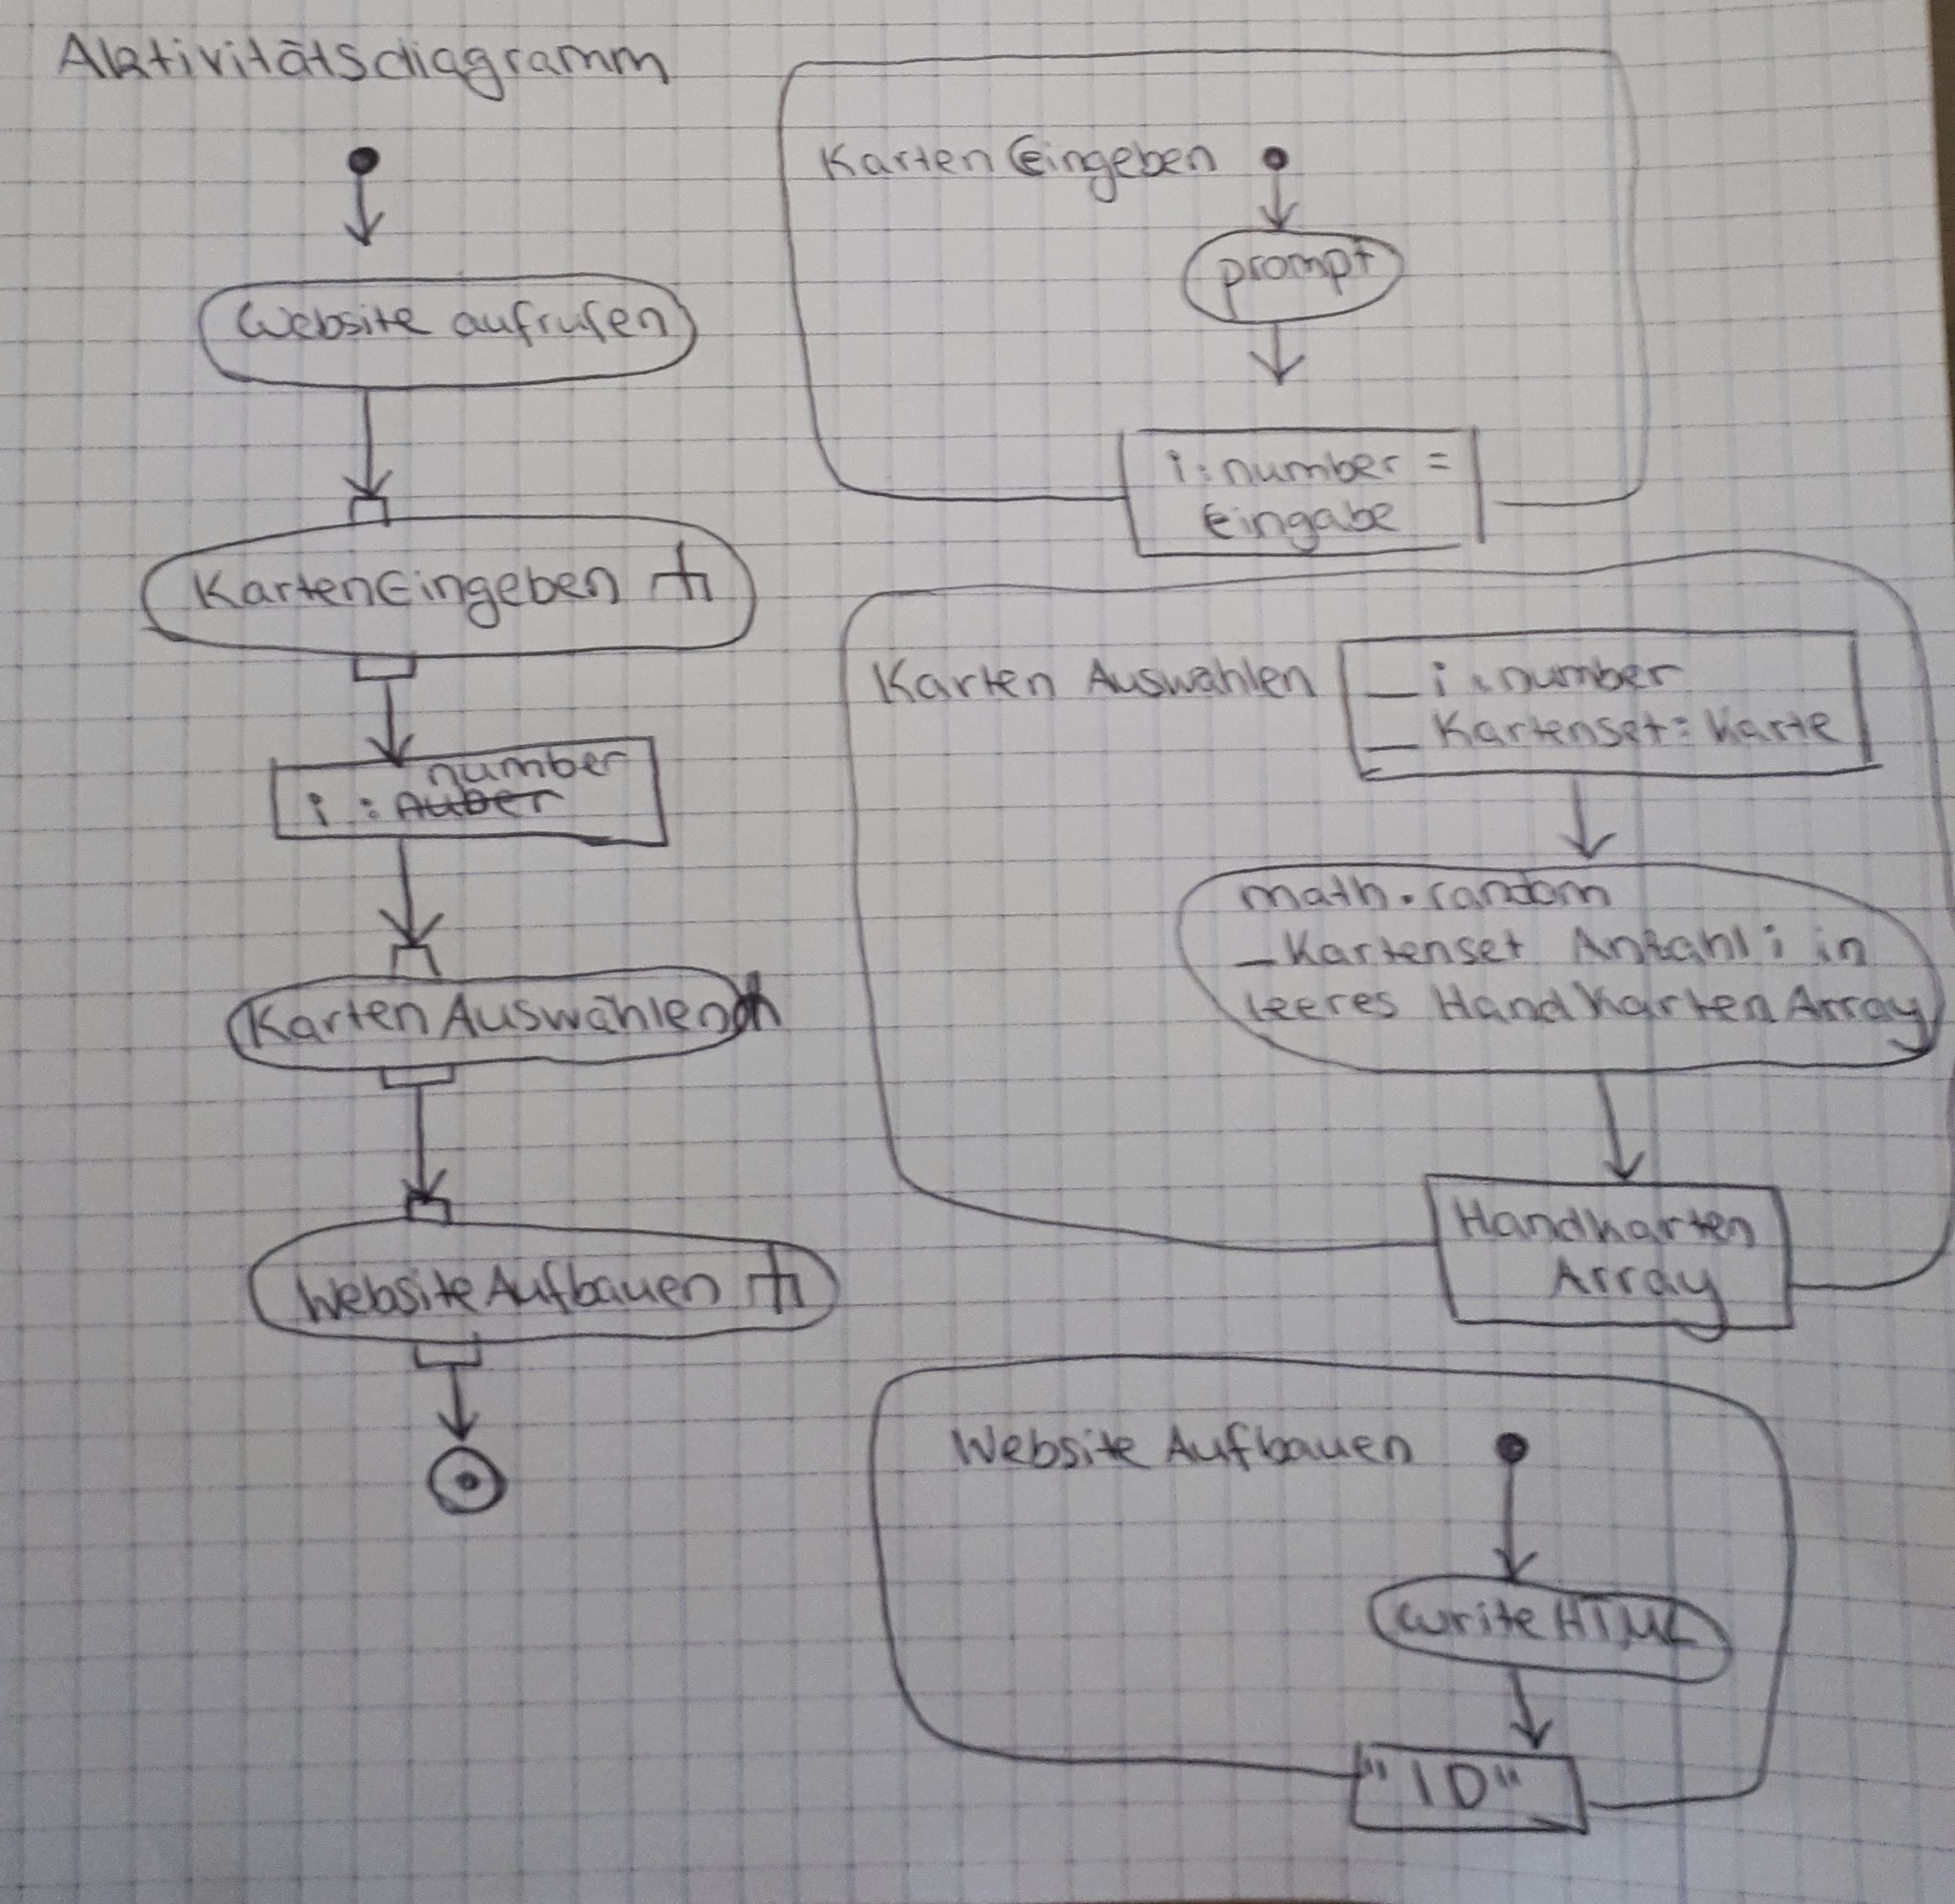 Aktivitätsdiagramm
Website aufrufen
KartenEingeben
number
i :
KartenAuswählen
WebsiteAufbauen
Karten Eingeben
prompt
i : number =
Eingabe
Karten Auswählen
_ i : number
_ Kartenset: Karte
math.random
_Kartenset Anzahl i in
leeres HandKartenArray
Handkarten
Array
Website Aufbauen
writeHTML
"ID"